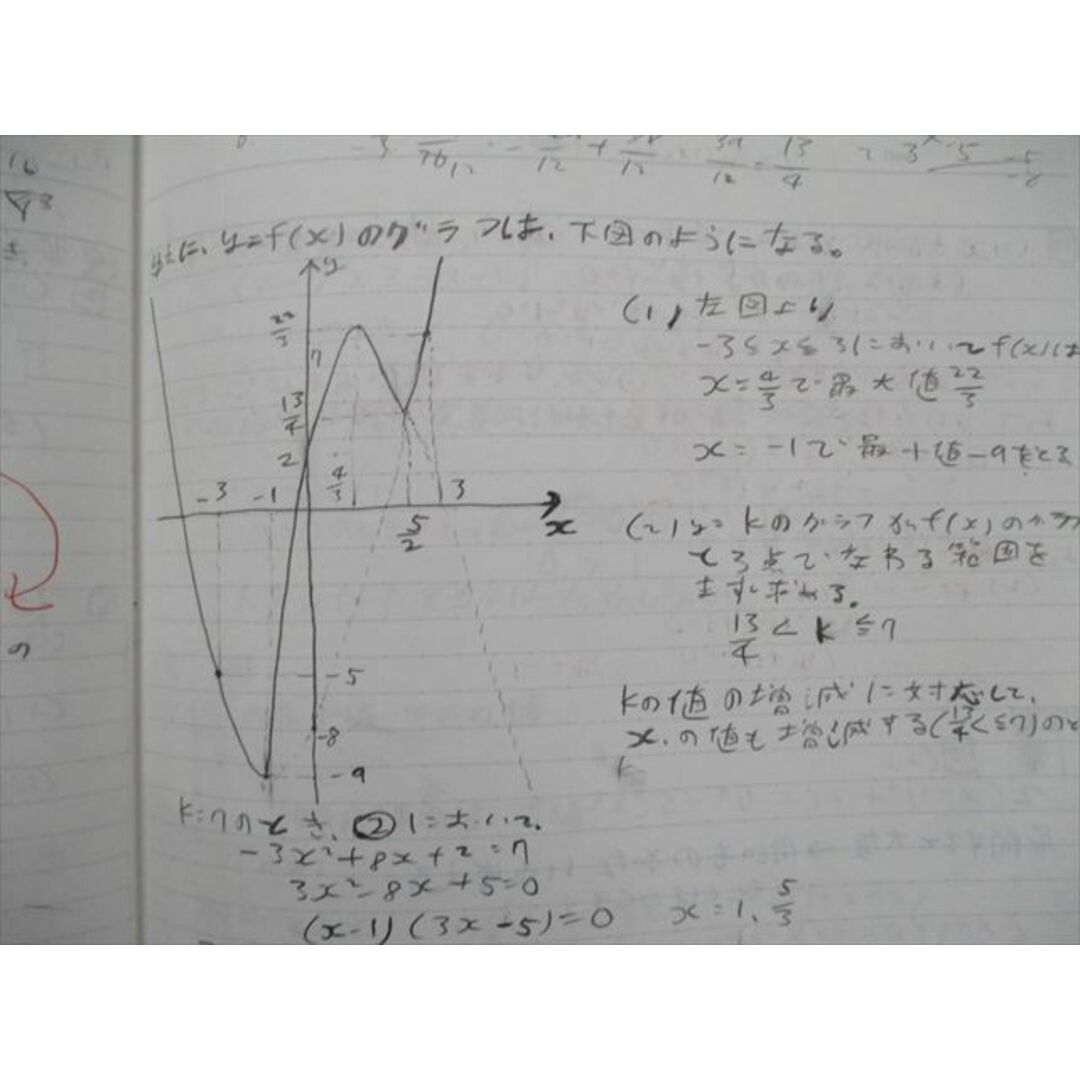 16
-3
12
12
12
13
4
y=f(x)のグラフは、下図のようになる。
y
22/3
7
13/4
2
-3 -1 4/3 5/2 3
x
-5
-8
-9
(1) 左図より
-3≦x≦3において f(x)は
x=4/3で最大値22/3
x=-1で最小値-9をとる
(2) y=kのグラフがf(x)のグラフ
と3点で交わる範囲を
まず求める。
13/4<k≦7
kの値の増減に対応して、
xの値も増減する(13/4<≦7)のと
k
k=7のとき、②において、
-3x²+8x+2=7
3x²-8x+5=0
(x-1)(3x-5)=0 x=1、5/3